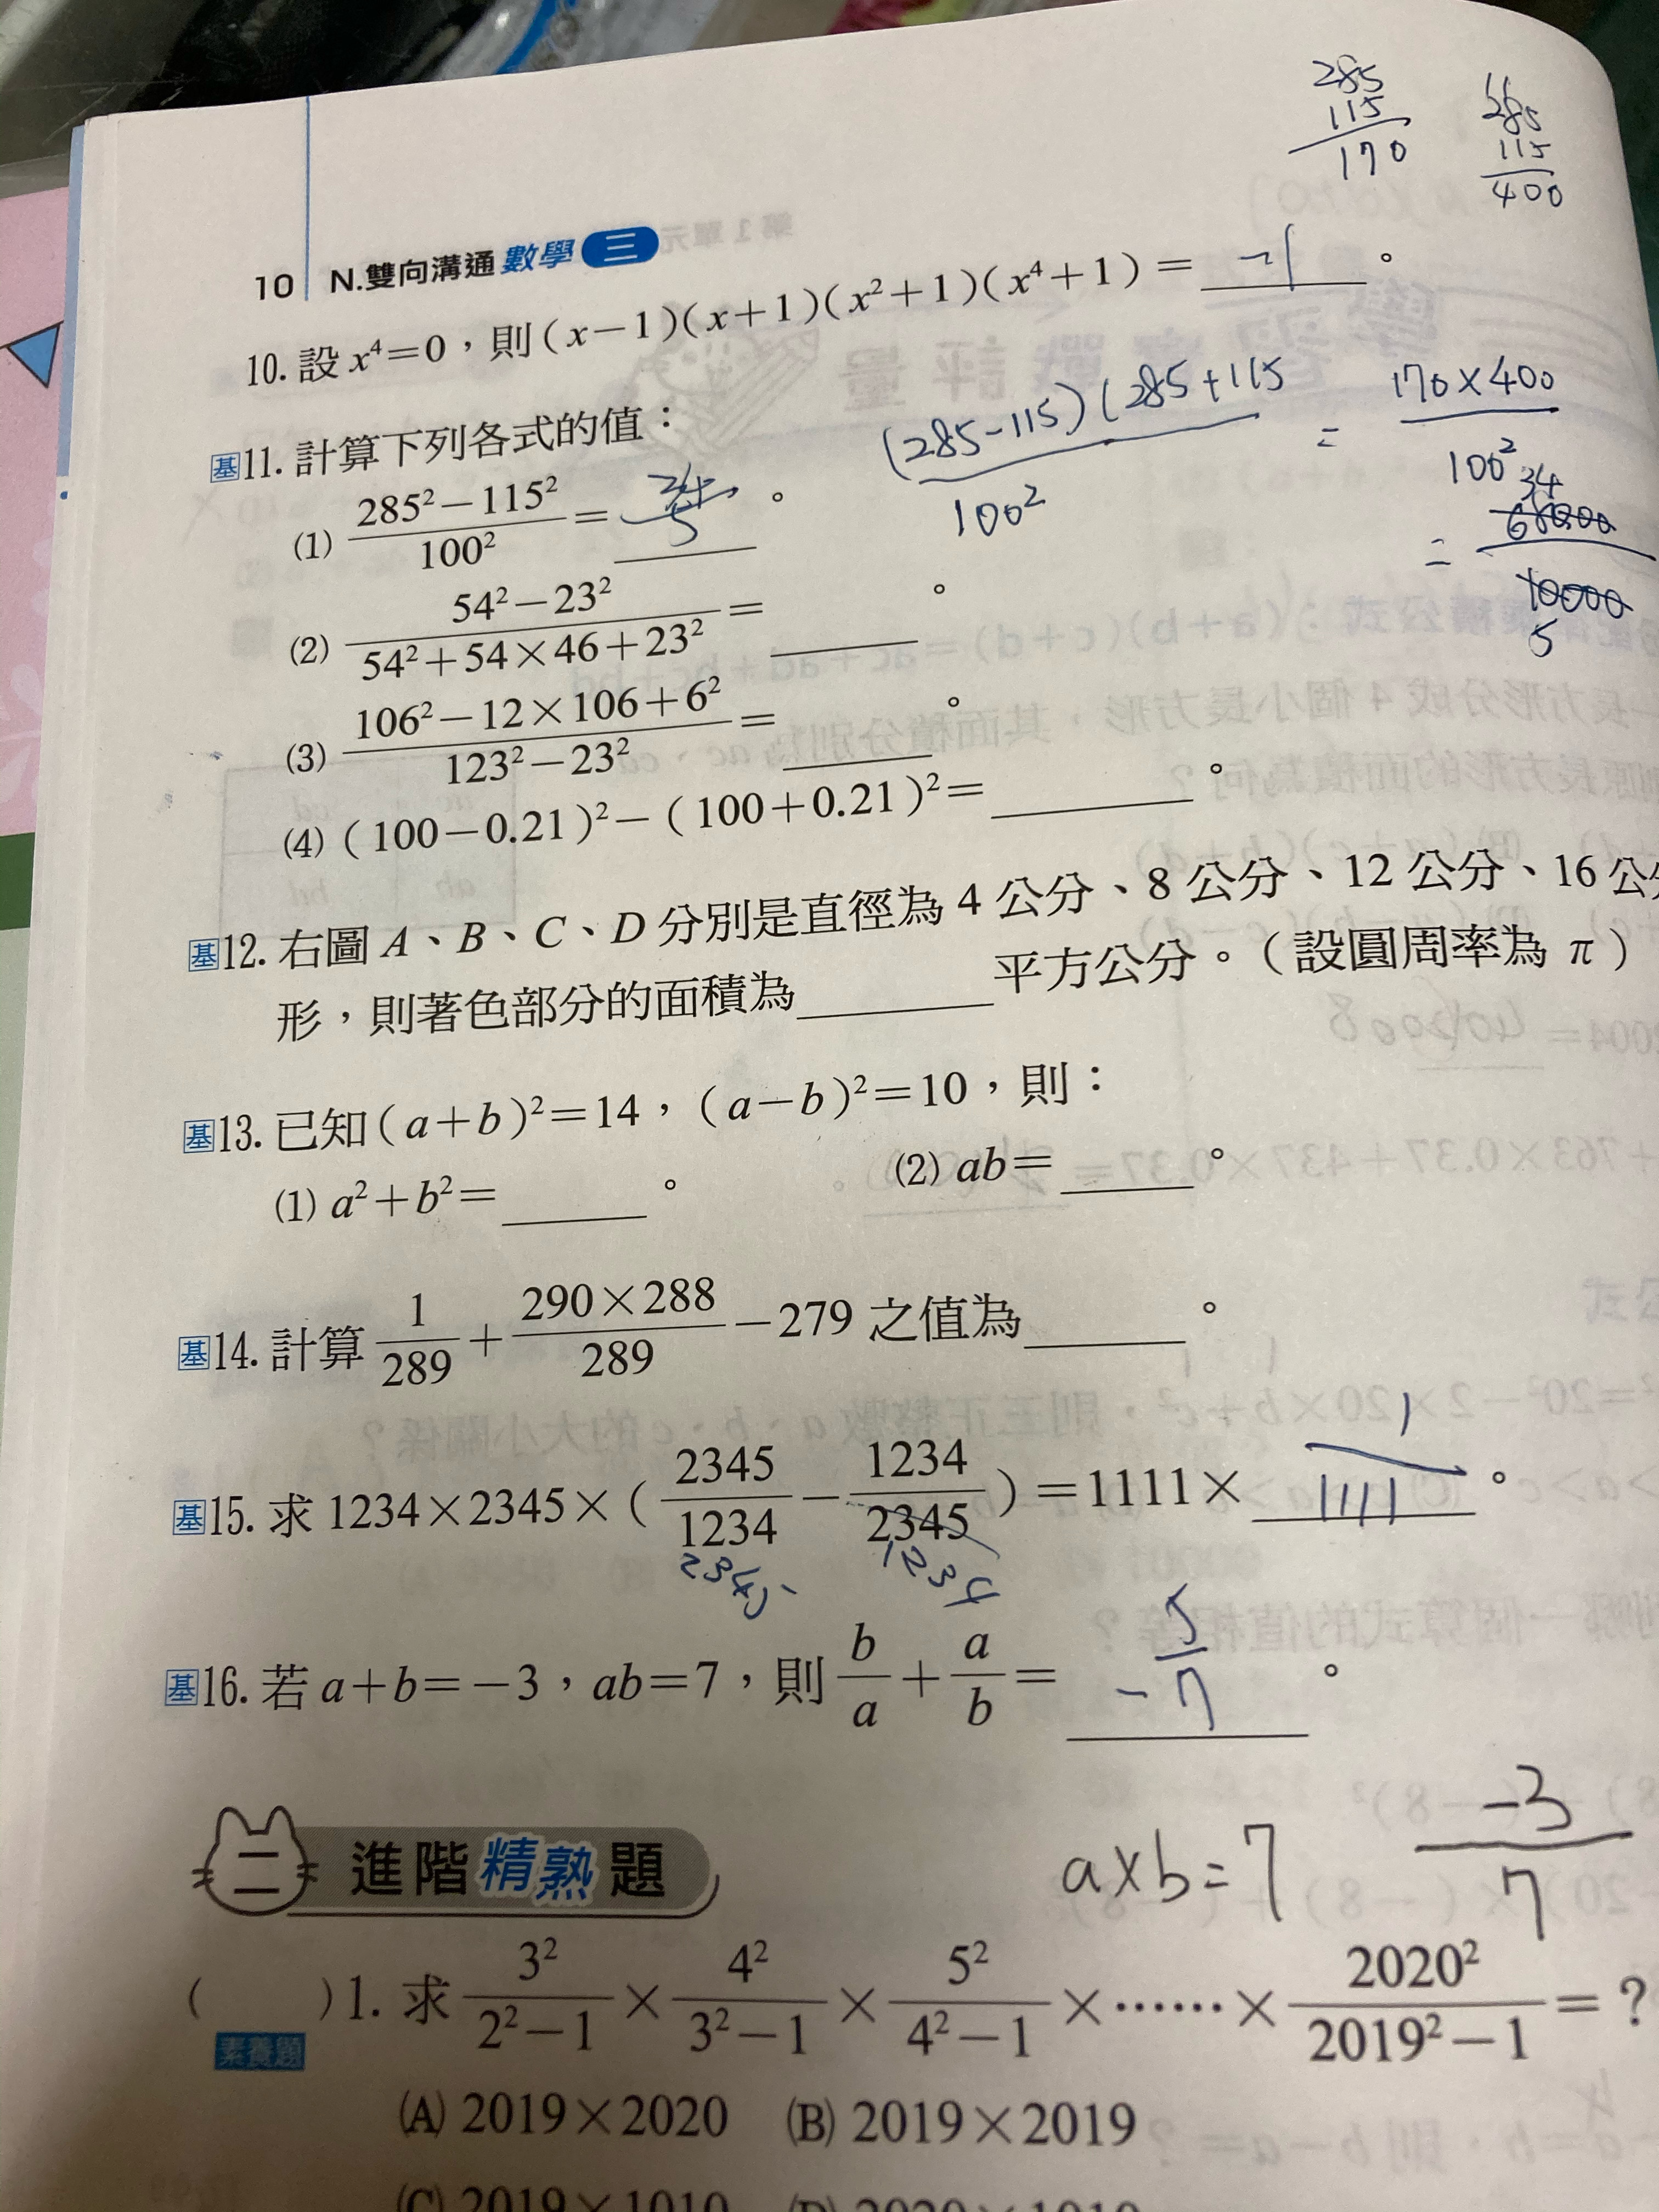 285
115
170
285
115
400
10 N.雙向溝通數學三
10. 設 x⁴=0，則(x−1)(x+1)(x²+1)(x⁴+1)= -1 。
基11. 計算下列各式的值：
(285-115)(285+115 / 100² = 170×400 / 100²
(1) (285²−115²)/100² = 34/5 。
= 68000/10000 34 5
(2) (54²−23²)/(54²+54×46+23²) = ______ 。
(3) (106²−12×106+6²)/(123²−23²) = ______ 。
(4) (100−0.21)²−(100+0.21)²= ______ 。
基12. 右圖 A、B、C、D 分別是直徑為 4 公分、8 公分、12 公分、16 公分
形，則著色部分的面積為______平方公分。（設圓周率為 π）
基13. 已知(a+b)²=14，(a−b)²=10，則：
(1) a²+b²=______。 (2) ab=______。
基14. 計算 1/289 + (290×288)/289 −279 之值為______。
基15. 求 1234×2345×( 2345/1234 − 1234/2345 )=1111× 1/1111 。
2345 1234
基16. 若 a+b=−3，ab=7，則 b/a + a/b = -5/7 。
二 進階精熟題
a×b=7 -3/7
( )1. 求 3²/(2²−1) × 4²/(3²−1) × 5²/(4²−1) ×⋯⋯× 2020²/(2019²−1) =？
素養題
(A) 2019×2020 (B) 2019×2019
(C) 2019×1010 (D) 2020×1010